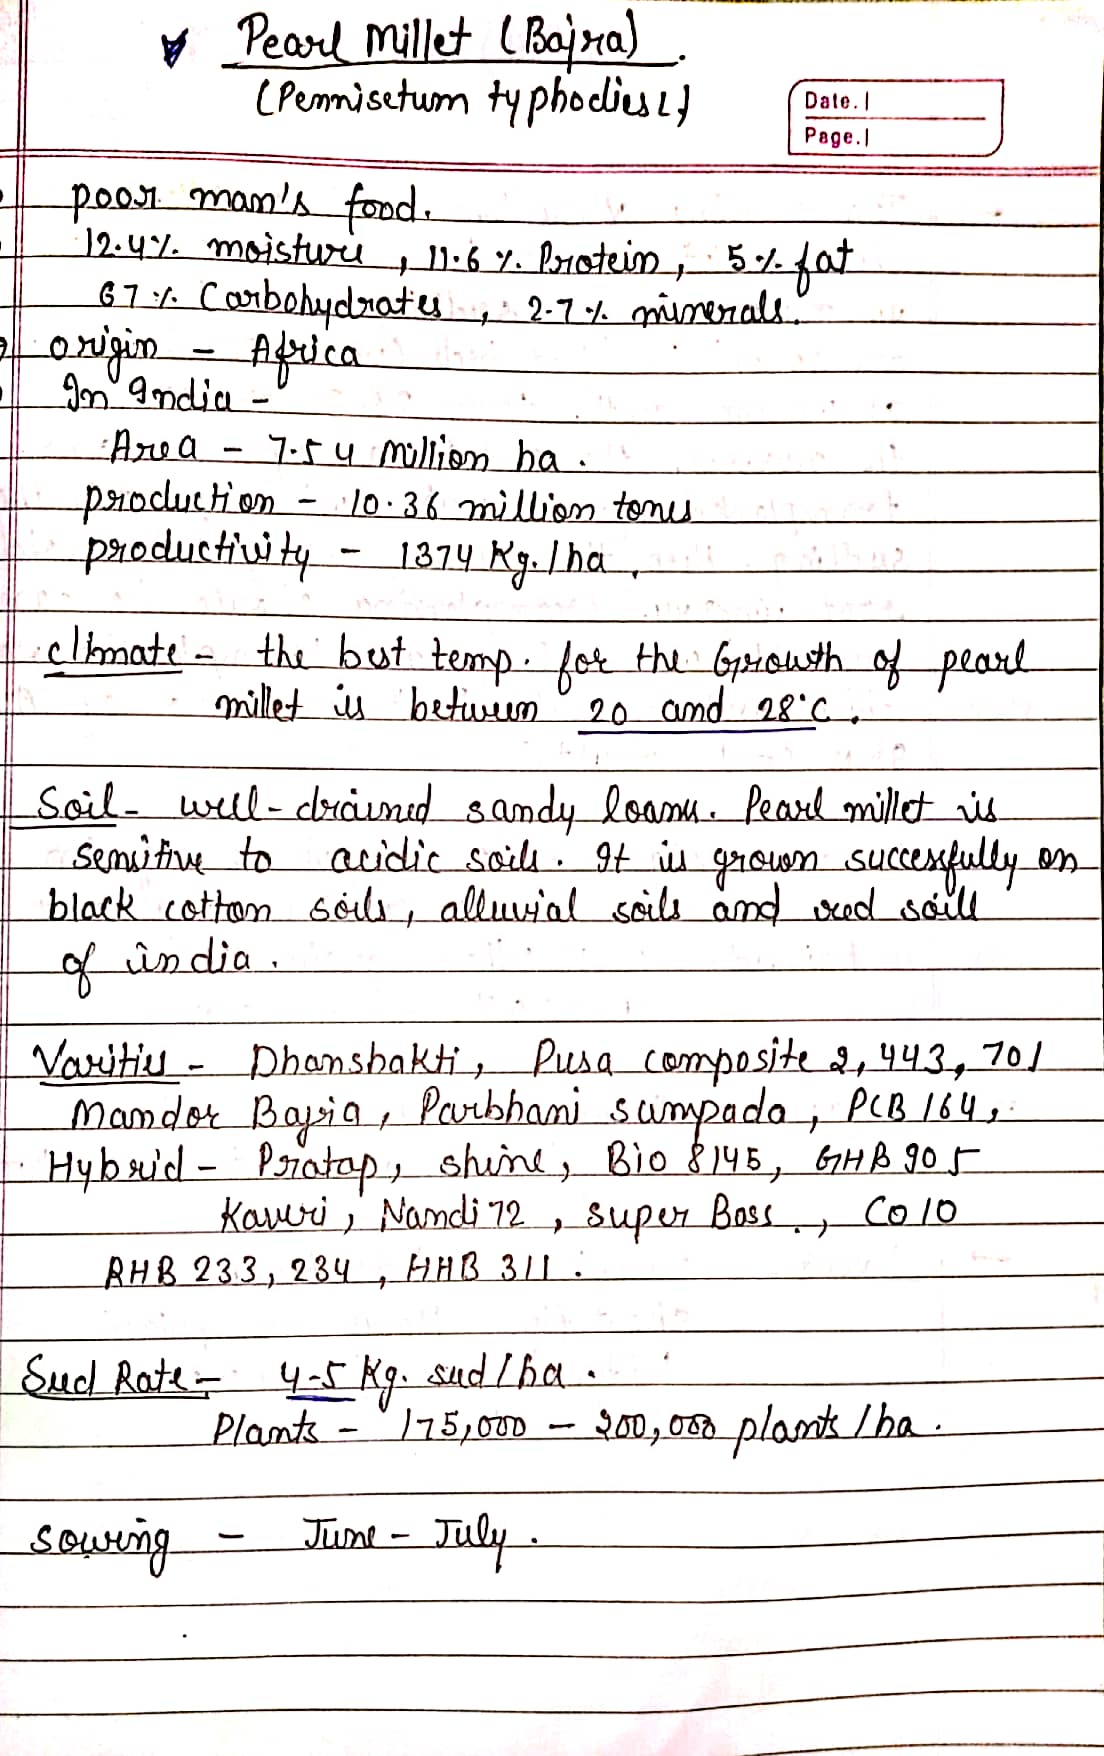 Pearl Millet (Bajra).
(Pennisetum typhodies L)
Date.
Page.
poor man's food.
12.4% moisture, 11.6 %. Protein, 5% fat
67% Carbohydrates, 2.7% minerals.
origin - Africa
In India -
Area - 7.54 Million ha.
production - 10.36 million tones
productivity - 1374 Kg./ha.
climate - the best temp. for the Growth of pearl
millet is between 20 and 28°C.
Soil - well-drained sandy loams. Pearl millet is
sensitive to acidic soils. It is grown successfully on
black cotton soils, alluvial soils and red soils
of india.
Varities - Dhanshakti, Pusa composite 2, 443, 701
Mandor Bajra, Parbhani sampada, PCB 164,
Hybrid - Pratap, shine, Bio 8145, GHB 905
Kaveri, Nandi 72, super Boss., CO 10
RHB 233, 234, HHB 311.
Seed Rate - 4-5 Kg. seed/ha.
Plants - 175,000 - 200,000 plants/ha.
sowing - June - July.